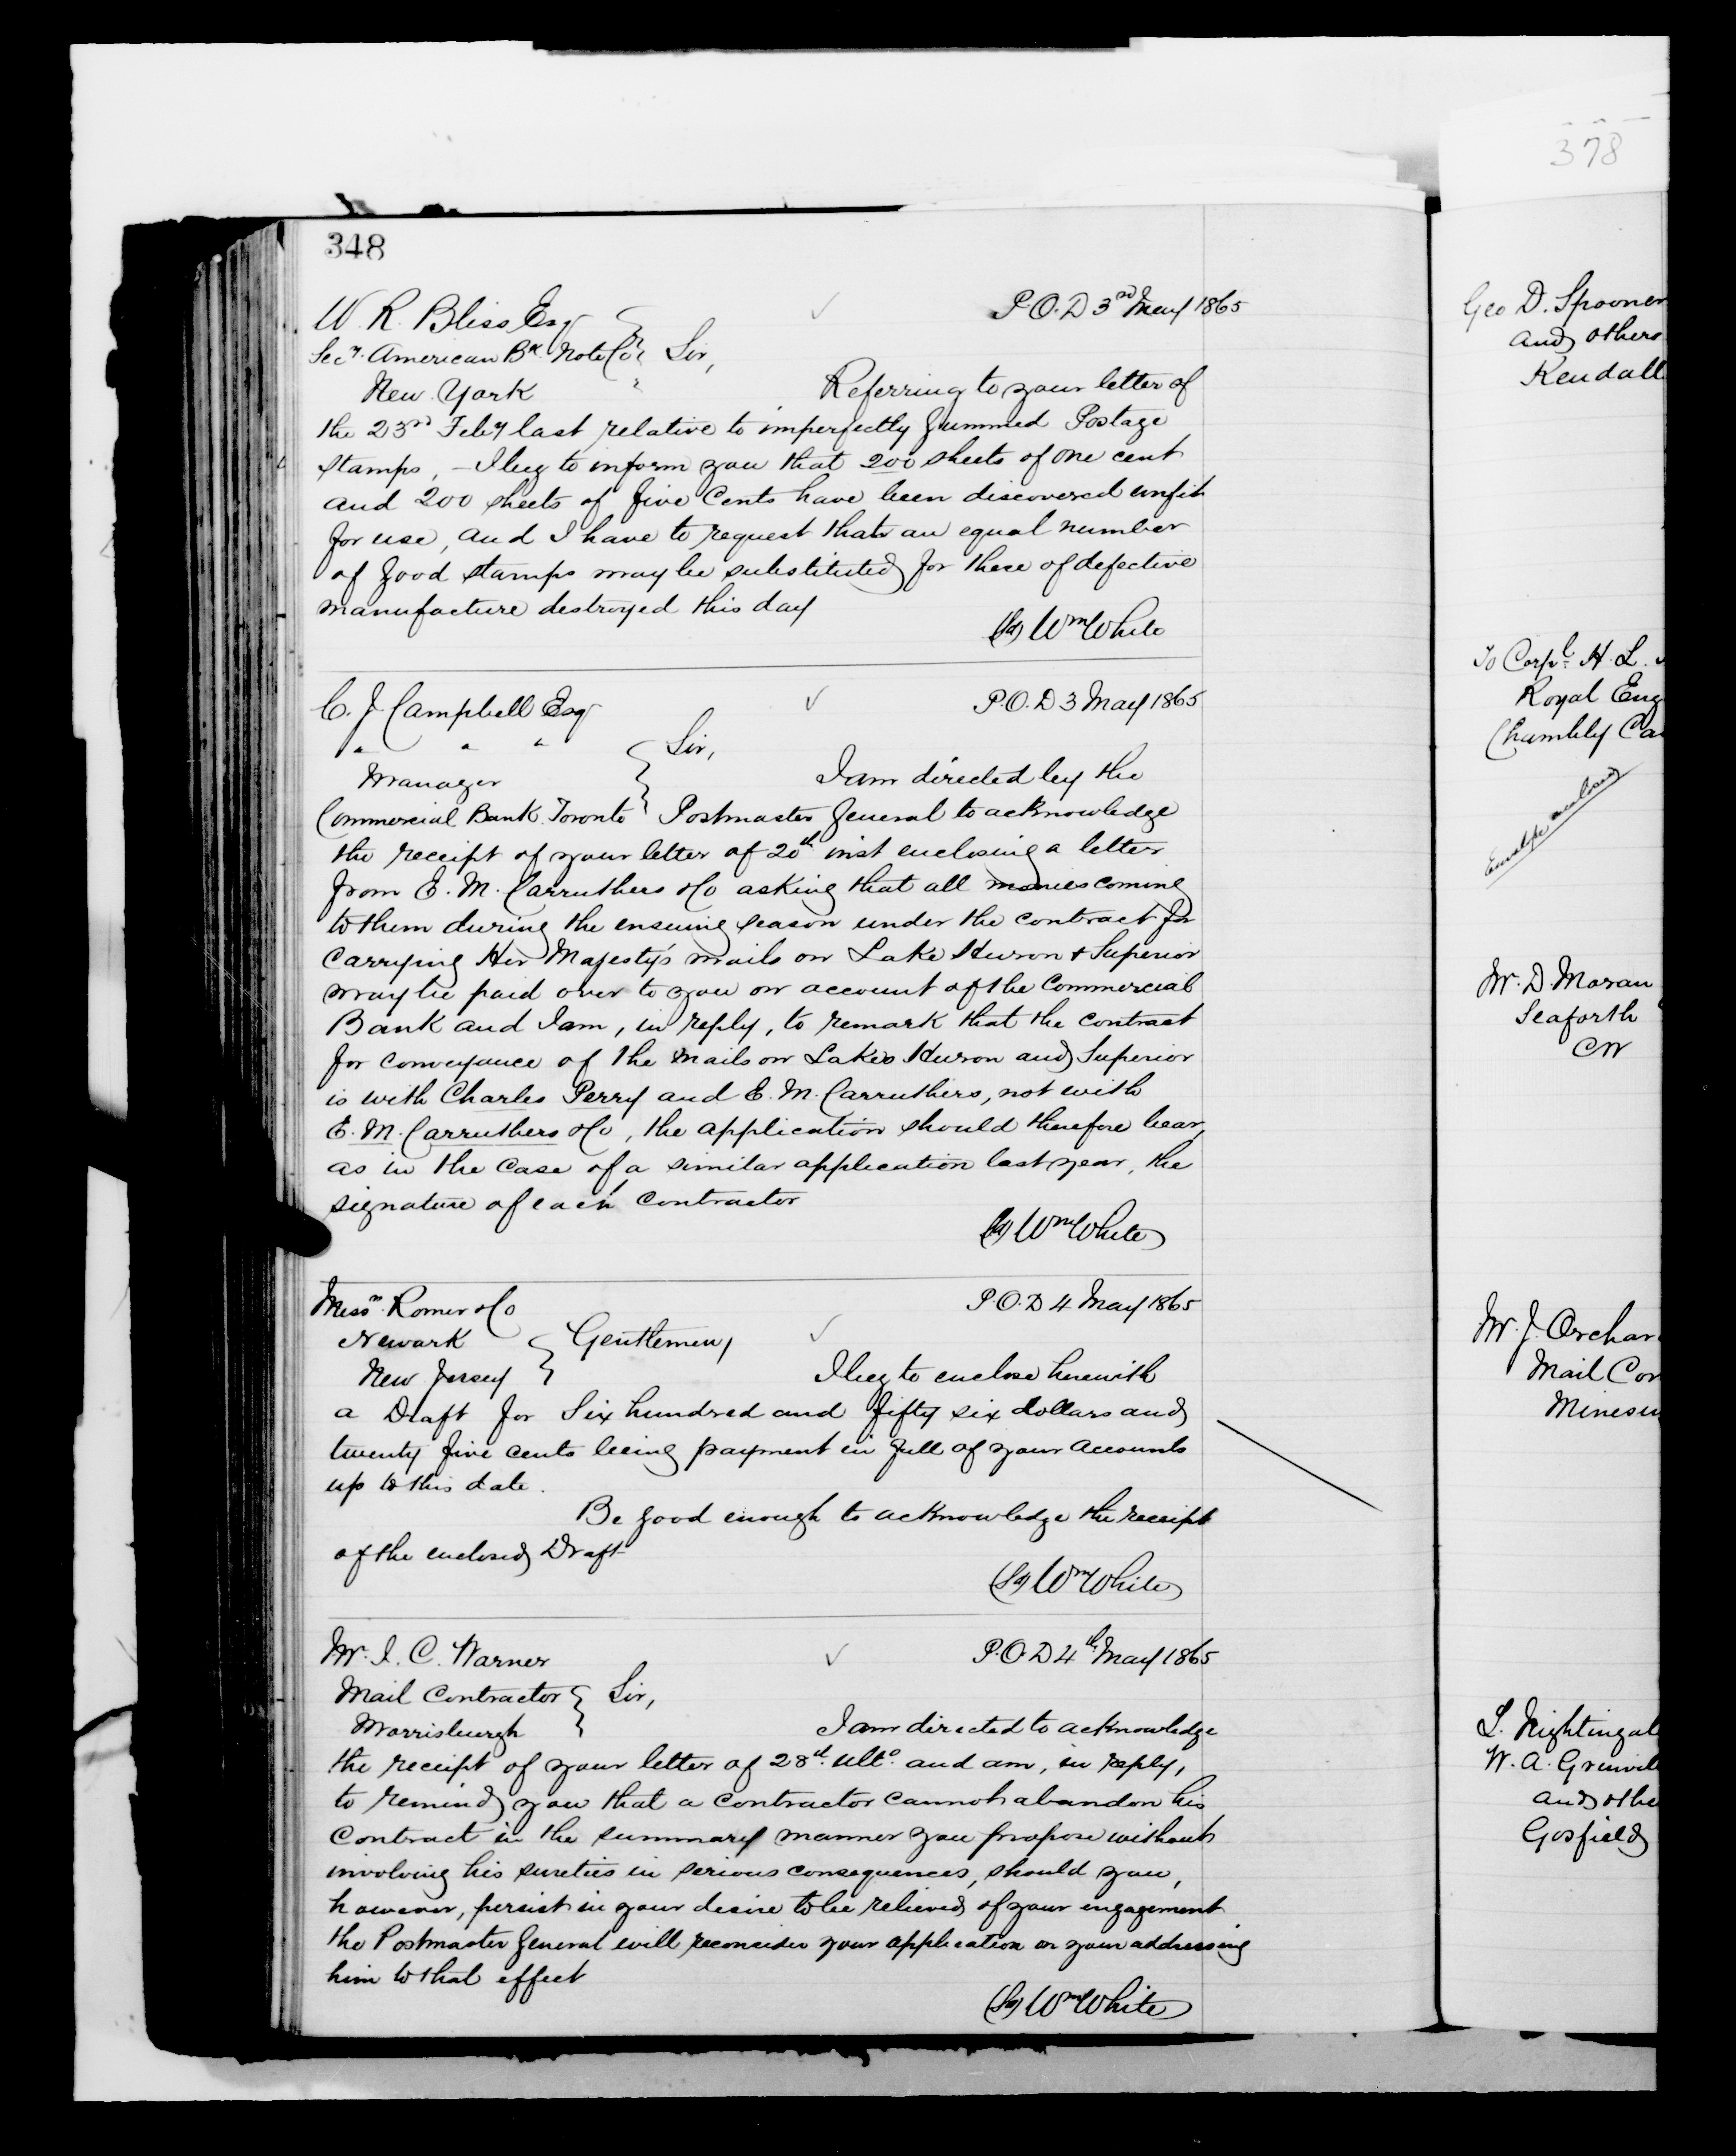 378
348
W. R. Bliss Esq
P.O.D 3rd May 1865
Secy. American Bk. Note Co
Sir,
New York
Referring to your letter of
the 23rd Feby last relative to imperfectly gummed Postage
Stamps, – I beg to inform you that 200 sheets of one cent
and 200 sheets of five Cents have been discovered unfit
for use, and I have to request that an equal number
of good stamps may be substituted for these of defective
manufacture destroyed this day
(Sd) Wm White
C. J. Campbell Esq
P.O.D 3 May 1865
" " "
Sir,
Manager
I am directed by the
Commercial Bank Toronto
Postmaster General to acknowledge
the receipt of your letter of 20th inst enclosing a letter
from E. M. Carruthers & Co asking that all monies coming
to them during the ensuing season under the contract for
carrying Her Majesty's mails on Lake Huron & Superior
may be paid over to you on account of the Commercial
Bank and I am, in reply, to remark that the contract
for conveyance of the mails on Lakes Huron and Superior
is with Charles Perry and E. M. Carruthers, not with
E. M. Carruthers & Co, the application should therefore bear,
as in the case of a similar application last year, the
signature of each contractor
(Sd) Wm White
Messrs. Romer & Co
P.O.D 4 May 1865
Newark
Gentlemen,
New Jersey
I beg to enclose herewith
a Draft for Six hundred and fifty six dollars and
twenty five cents being payment in full of your accounts
up to this date.
Be good enough to acknowledge the receipt
of the enclosed Draft
(Sd) Wm White
Mr. I. C. Warner
P.O.D 4th May 1865
Mail Contractor
Sir,
Morrisburgh
I am directed to acknowledge
the receipt of your letter of 28th. ulto. and am, in reply,
to remind you that a contractor cannot abandon his
contract in the summary manner you propose without
involving his sureties in serious consequences, should you,
however, persist in your desire to be relieved of your engagement
the Postmaster General will reconsider your application on your addressing
him to that effect
(Sd) Wm White
Geo D. Spooner
and others
Kendall
To Corpl. H. L.
Royal Eng
Chambly Ca
Envelope enclosed
Mr. D. Moran
Seaforth
CW
Mr. J. Orchar
Mail Con
Minesi
L. Nightingal
W. A. Grenvil
and othe
Gosfield